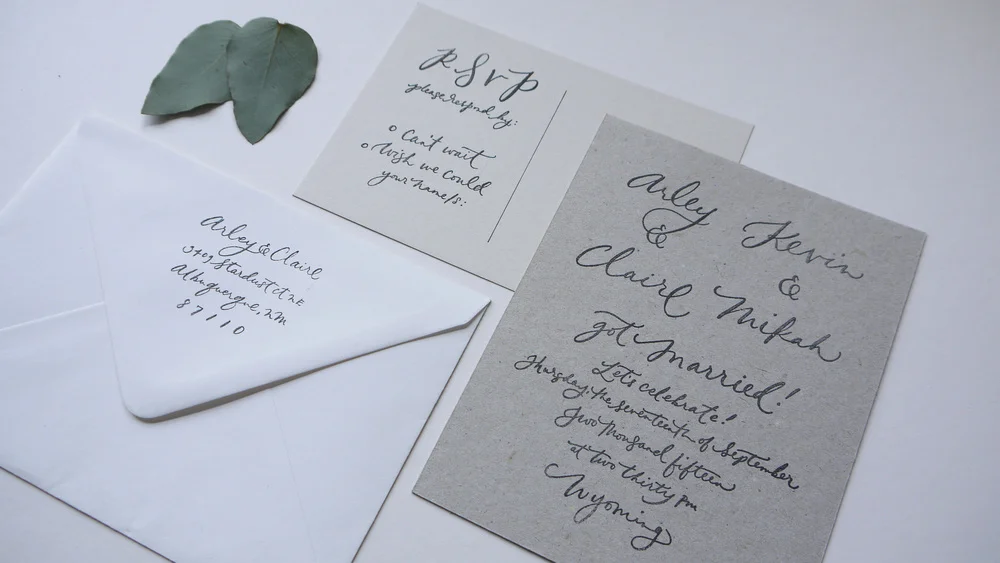 RSVP
please respond by:
Can't wait
Wish we could
your name/s:
Arley & Claire
3709 Stardust Ct NE
Albuquerque, NM
87110
Arley Kevin
& &
Claire Mikah
got married!
Let's celebrate!
Thursday, the seventeenth of September
Two thousand fifteen
at two thirty pm
Wyoming